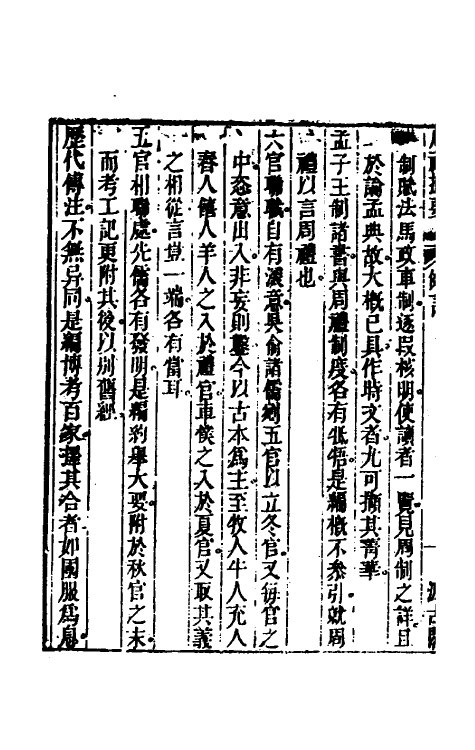 制賦法馬政車制逐段核明使讀者一覽見周制之詳且
於論孟典故大概已具作時文者尤可擷其菁華
孟子王制諸書與周禮制度各有牴牾是編概不叅引就周
禮以言周禮也
六官聯職自有深意吳俞諸儒割五官以立冬官又每官之
中恣意出入非妄則鑿今以古本爲主至牧人牛人充人
舂人饎人羊人之入於禮官車僕之入於夏官又取其義
之相從言豈一端各有當耳
五官相聯處先儒各有發明是編約舉大要附於秋官之末
而考工記更附其後以別舊經
歷代傳注不無异同是編博考百家擇其合者如國服爲息